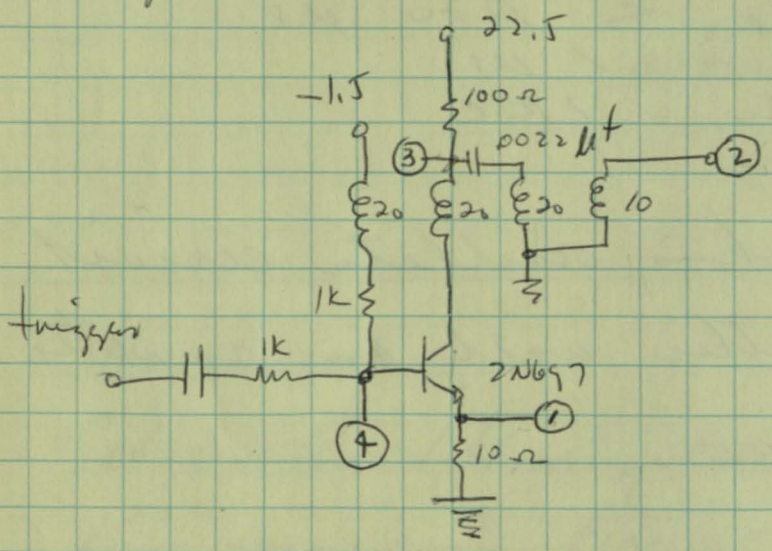 22.5
-1.5
100Ω
3
.0022 μf
2
20
20
20
10
1K
trigger
1K
2N697
1
4
10Ω